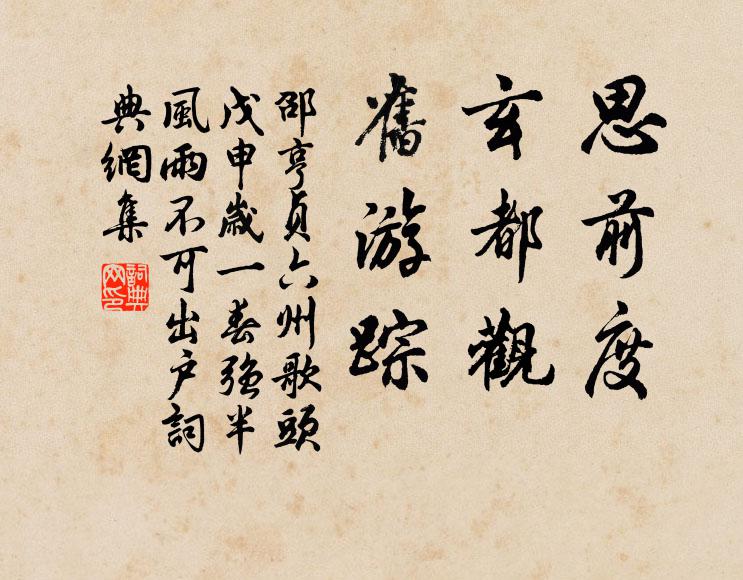 思前度
玄都觀
舊游踪
邵亨貞六州歌頭
戊申歲一春強半
風雨不可出戶詞
典網集
詞典
网印